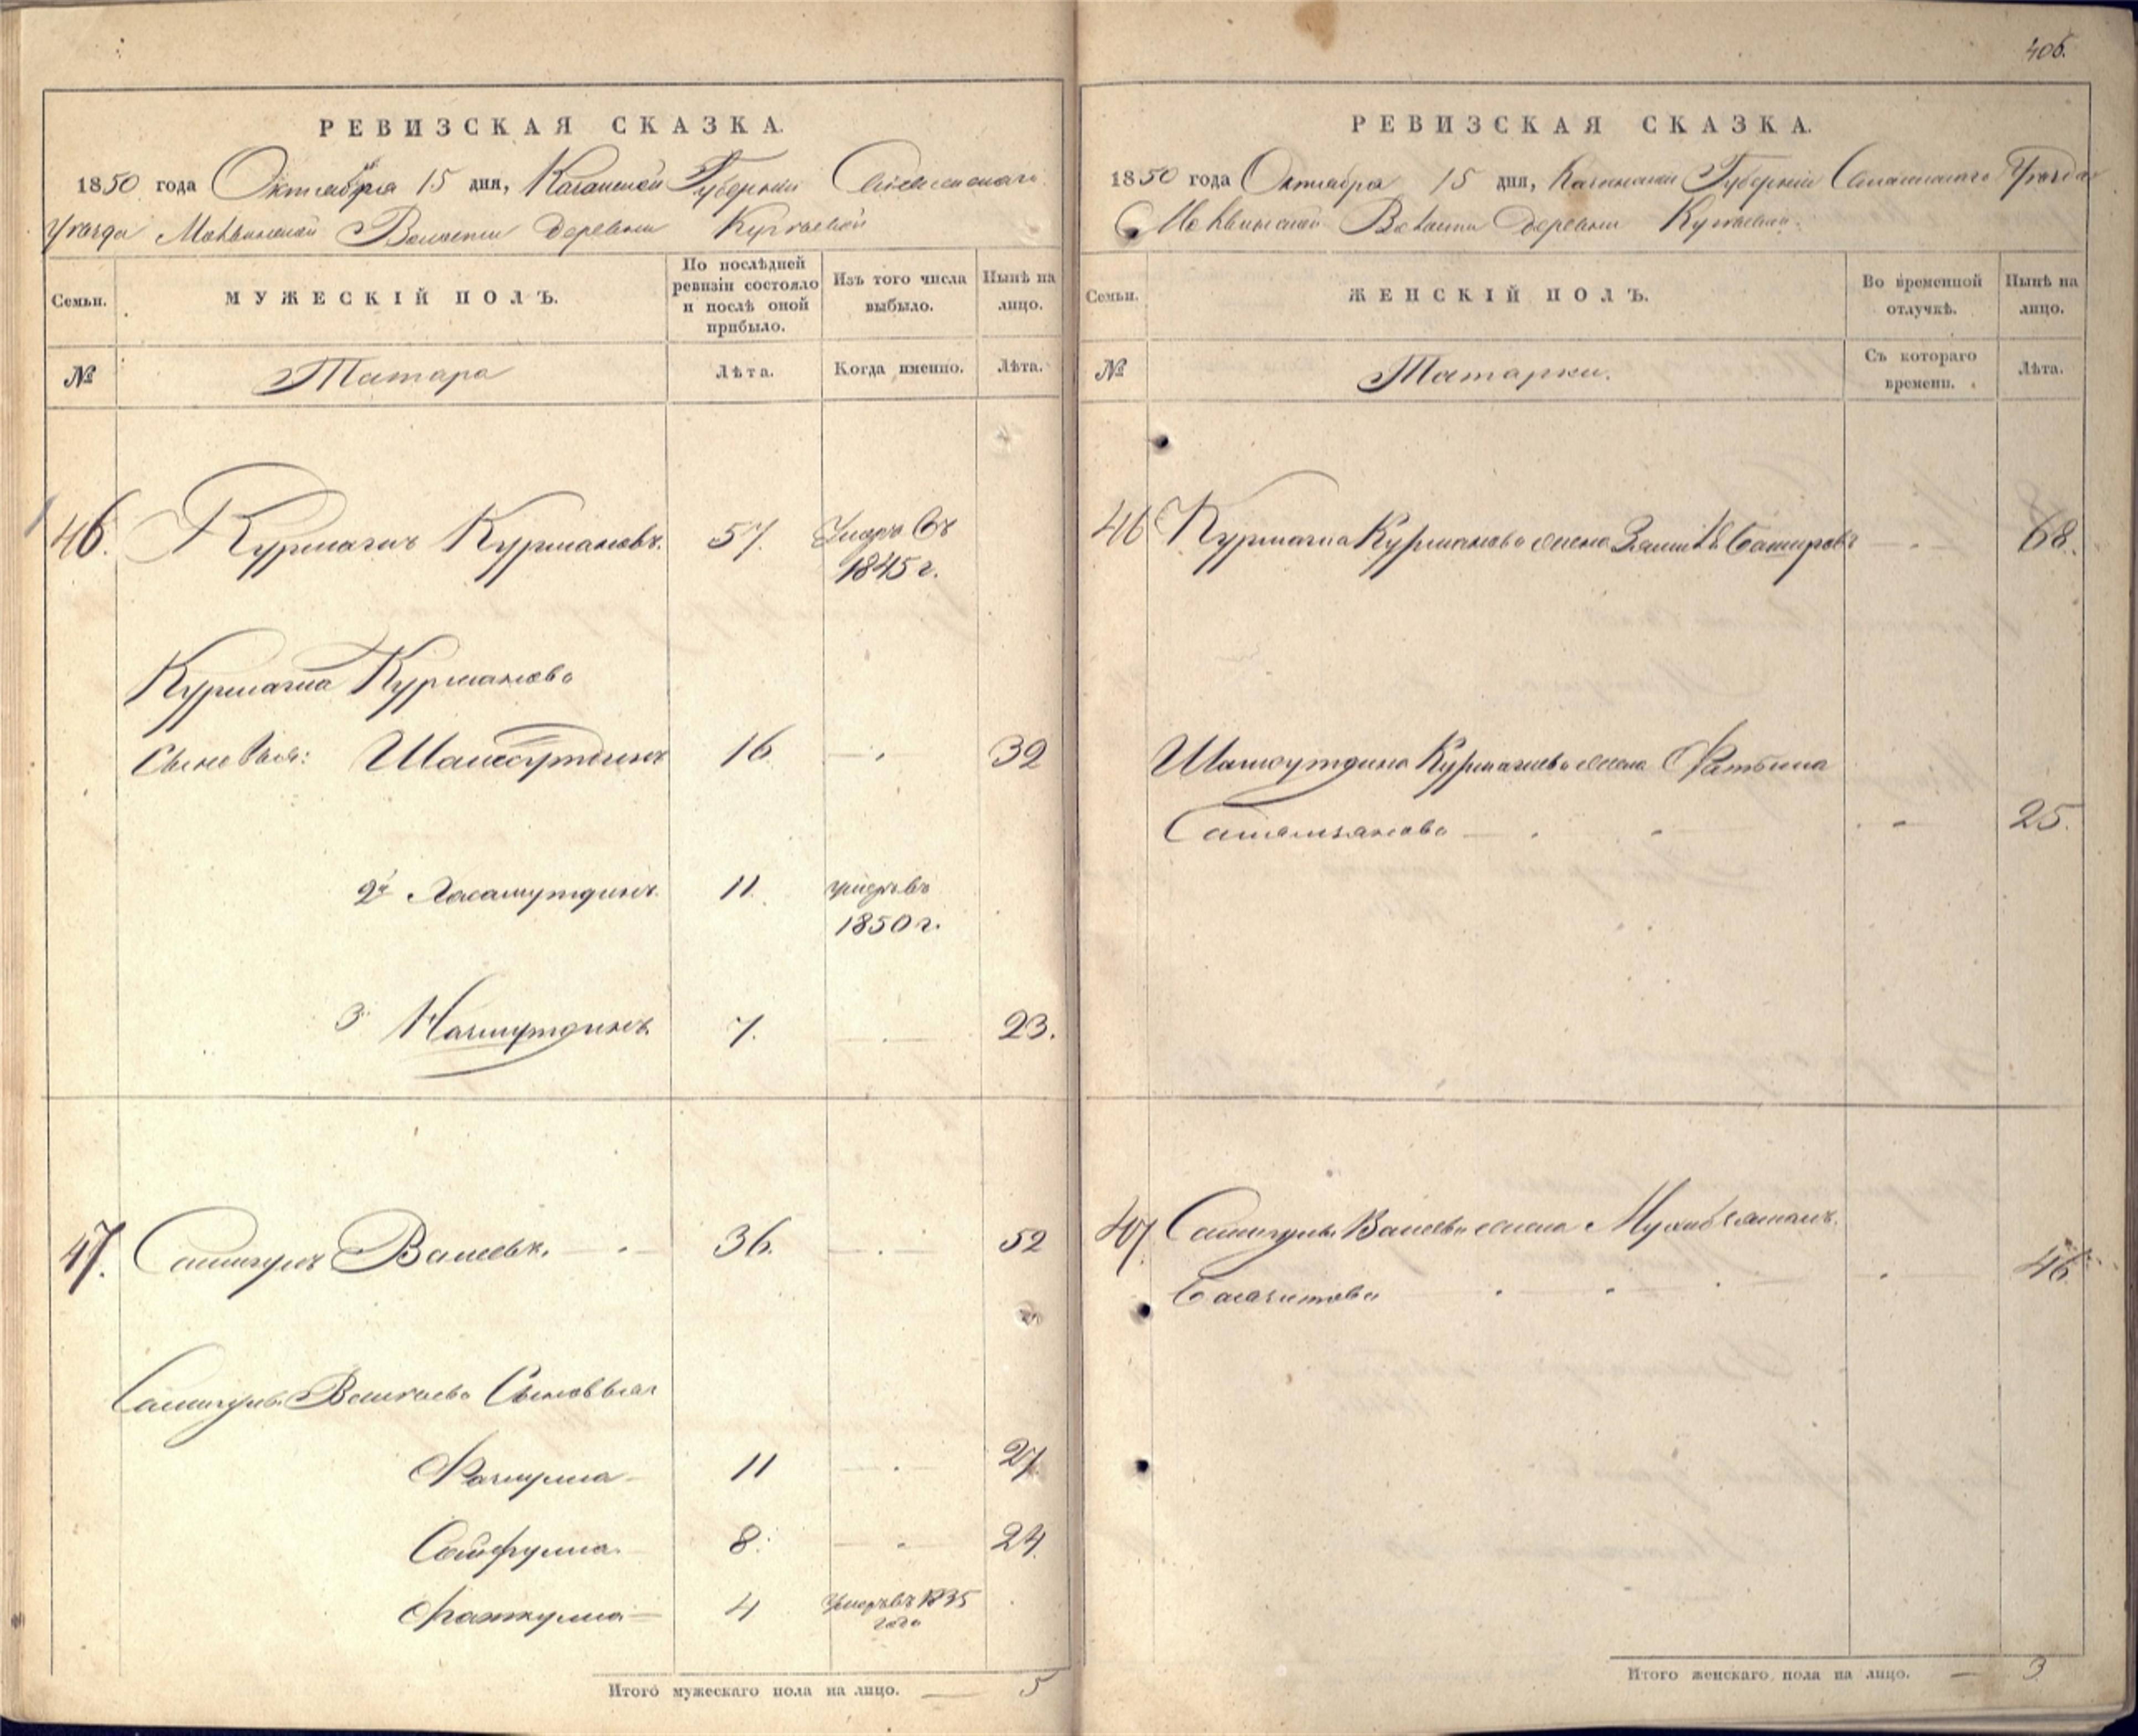 РЕВИЗСКАЯ СКАЗКА.
1850 года Октября 15 дня, Казанской Губернии Спасскаго
Уезда Волости Деревни
Семьи.
МУЖЕСКІЙ ПОЛЪ.
По послѣдней ревизіи состояло и послѣ оной прибыло.
Изъ того числа выбыло.
Нынѣ на лицо.
№
Татара
Лѣта.
Когда именно.
Лѣта.
46. Курмагин Курманов. 57. Умер въ
1845 г.
Курмагина Курманова
сыновья: Шамсутдинъ 16 32
2й Хасамутдинъ. 11. умеръ въ
1850 г.
3 Назмутдинъ 7. 23.
47. Самигулъ Валеевъ. 36. 52
Самигула Сыновья
Фазмула 11 27
Сайфулла. 8. 24.
Фаткулла 4 Умеръ въ 1835
года
Итого мужескаго пола на лицо. 5
406.
РЕВИЗСКАЯ СКАЗКА.
1850 года Октября 15 дня, Казанской Губерніи Спасскаго Уезда
Волости Деревни
Семьи.
ЖЕНСКІЙ ПОЛЪ.
Во временной отлучкѣ.
Нынѣ на лицо.
№
Татарки.
Съ котораго времени.
Лѣта.
46 Курмагина Курманова жена Башырова 68.
Шамсутдина Курмагинова жена Фатыма
25.
47. Самигула Валеева жена
46
Итого женскаго пола на лицо. 3